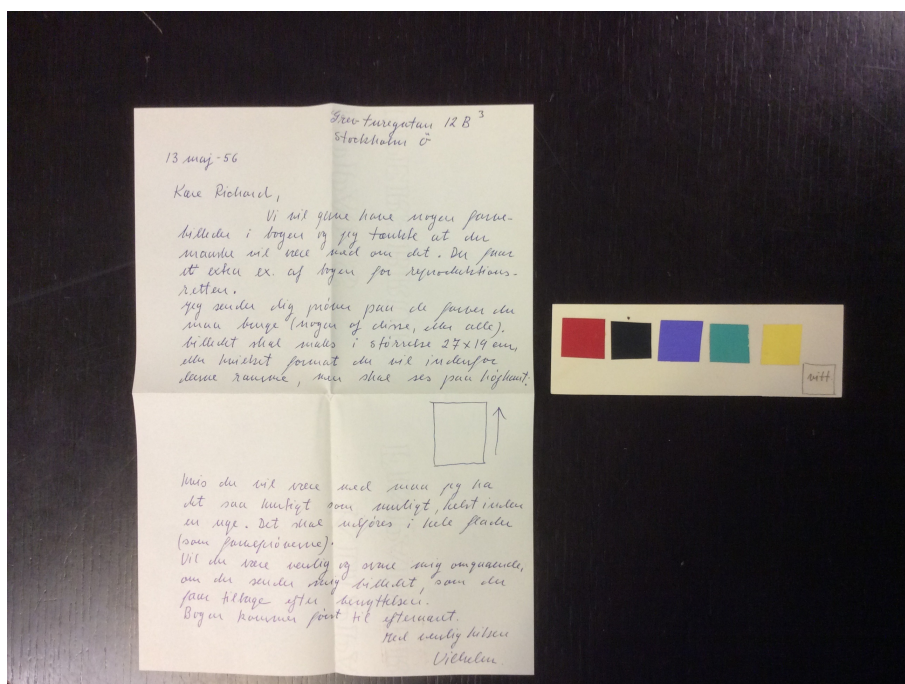 Grev Turegatan 12 B³
Stockholm Ö
13 maj - 56
Kære Richard,
Vi vil gerne have nogen farve-
billeder i bogen og jeg tænkte at du
maaske vil være med om det. Du faar
et extra ex. af bogen for reproduktions-
retten.
Jeg sender dig prøver paa de farver du
maa bruge (nogen af disse, eller alle).
billedet skal males i størrelse 27x19 cm,
eller hvilket format du vil indenfor
denne ramme, men skal ses paa höghant.
hvis du vil være med maa jeg ha
det saa hurtigt som muligt, helst inden
en uge. Det skal udföres i hele flader
(som farvepröverne).
Vil du være venlig og svare mig omgaaende,
om du sender mig billedet, som du
faar tilbage efter benyttelsen.
Bogen kommer först til efteraaret.
Med venlig hilsen
Vilhelm
vitt